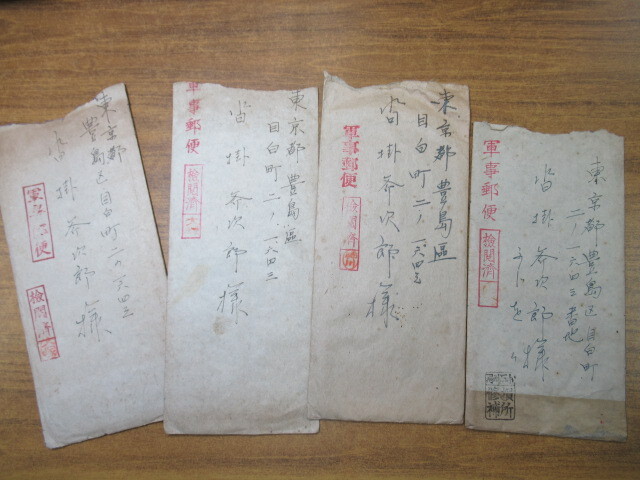 東京都豊島区目白町二ノ一六四三
沓掛斧次郎様
軍事郵便
検閲済
東京都豊島區
目白町二ノ一六四三
沓掛斧次郎様
軍事郵便
検閲済
東京都豊島區
目白町二ノ一六四三
沓掛斧次郎様
軍事郵便
検閲済
東京都豊島区目白町
二ノ一六四三番地
沓掛斧次郎様
軍事郵便
検閲済